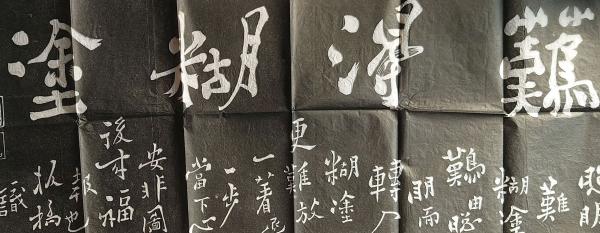 難得糊塗
聰明
難
糊塗
難由聰
明而
轉入
糊塗
更難放
一著退
一步
當下心
安非圖
後来福
報也
板橋
識